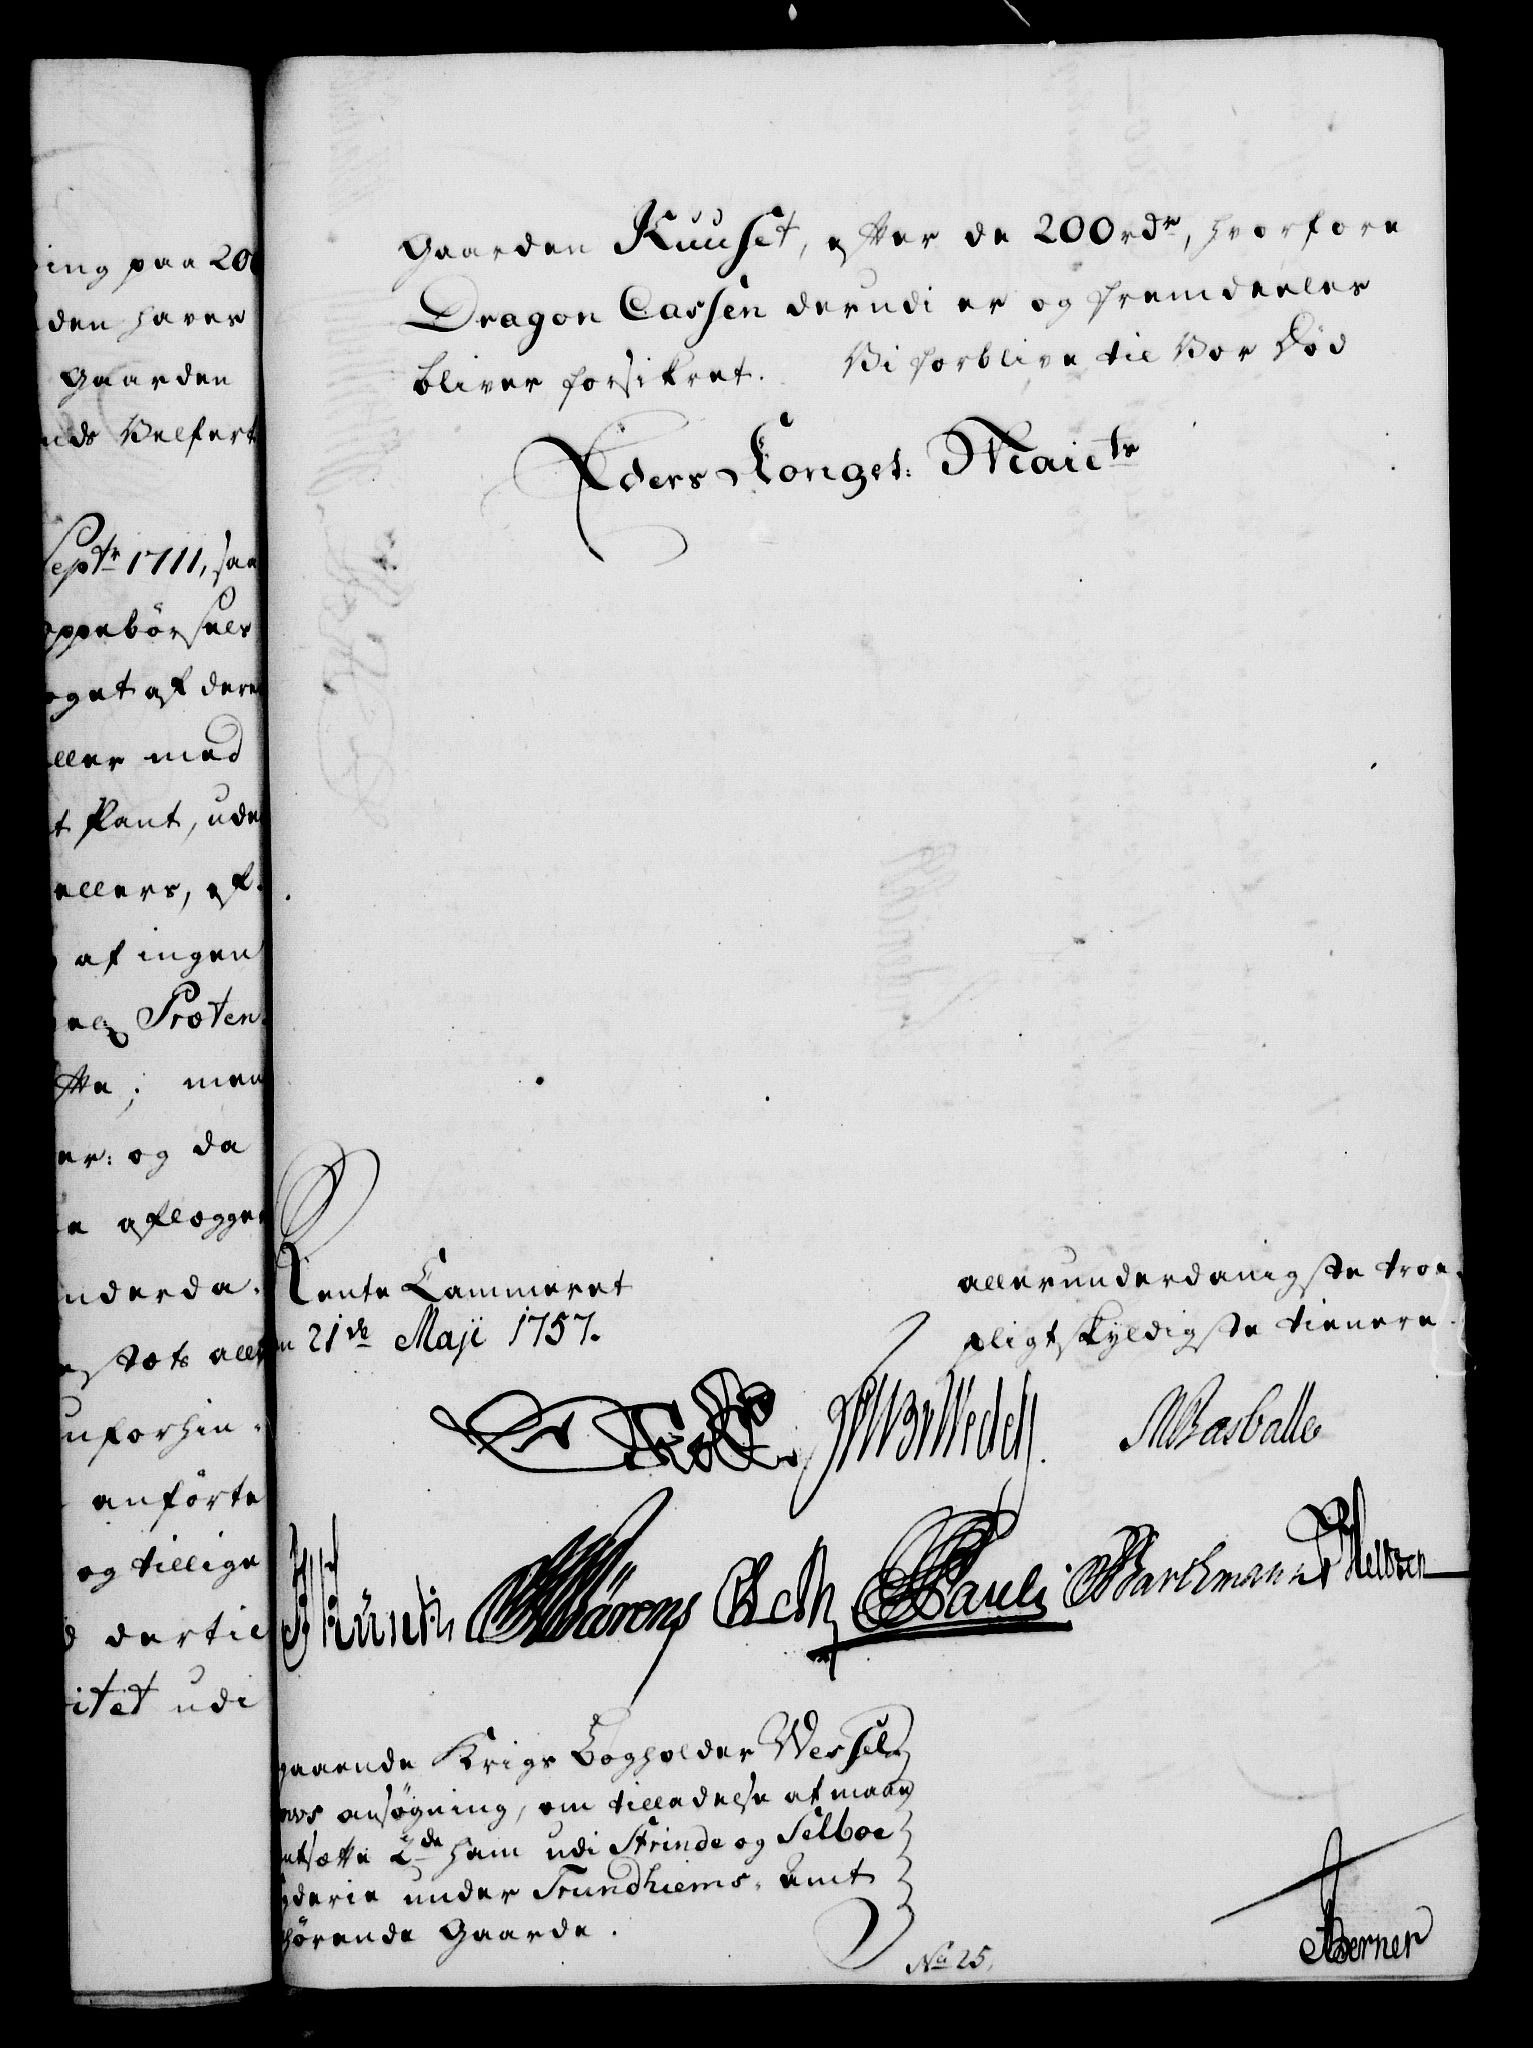 ing paa 200
den haver
Gaarden
nds Velfert
Septr 1711, saa
oppebörsels
oget af dere
ller med
t Pant, ude
ellers, ef-
af ingen
Præten-
tte; men
er: og da
e aflægge
nderda-
stæts aller
unforhin-
anförte
og tillige
dertil
itet udi
Gaarden Kuuset, efter de 200 rdr, hvorfore
Dragon Cassen derudi er og fremdeeles
bliver forsikret. Vi forblive til Vor Död
Eders Kongel: Maiets
Rente Cammeret
n 21de Maji 1757.
allerunderdanigste troe-
pligtskyldigste tienere.
Wedell. MBasballe
Küneth Mörons Beck Pauli Barchmann
gaaende Krigs Bogholder Wessel
ansögning, om tilladelse at maae
ntsætte 2de ham udi Strinde og Selboe
gderie under Trundhiems Amt
hörende Gaarde.
No 25.
Berner